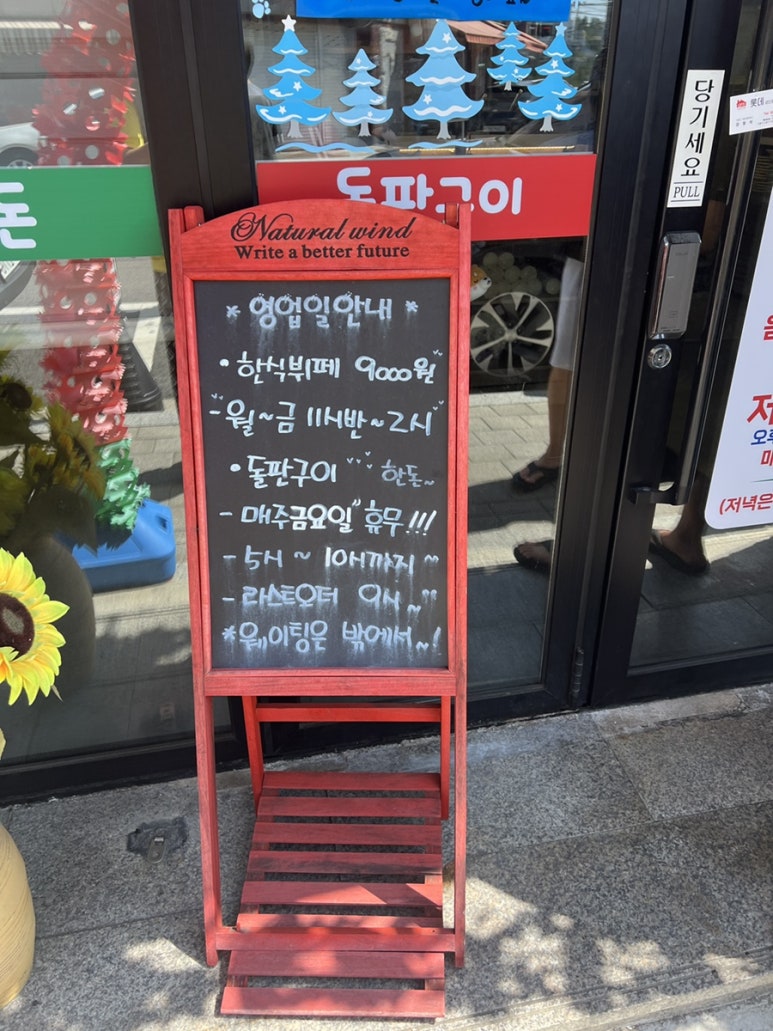 돌판구이
돈
당기세요
PULL
롯데
Natural wind
Write a better future
* 영업일안내 *
• 한식뷔페 9000원
- 월 ~ 금 11시반 ~ 2시
• 돌판구이 한돈~
- 매주금요일 휴무 !!!
- 5시 ~ 10시까지 ~
- 라스트오더 9시 ~
* 웨이팅은 밖에서 ~!
(저녁은